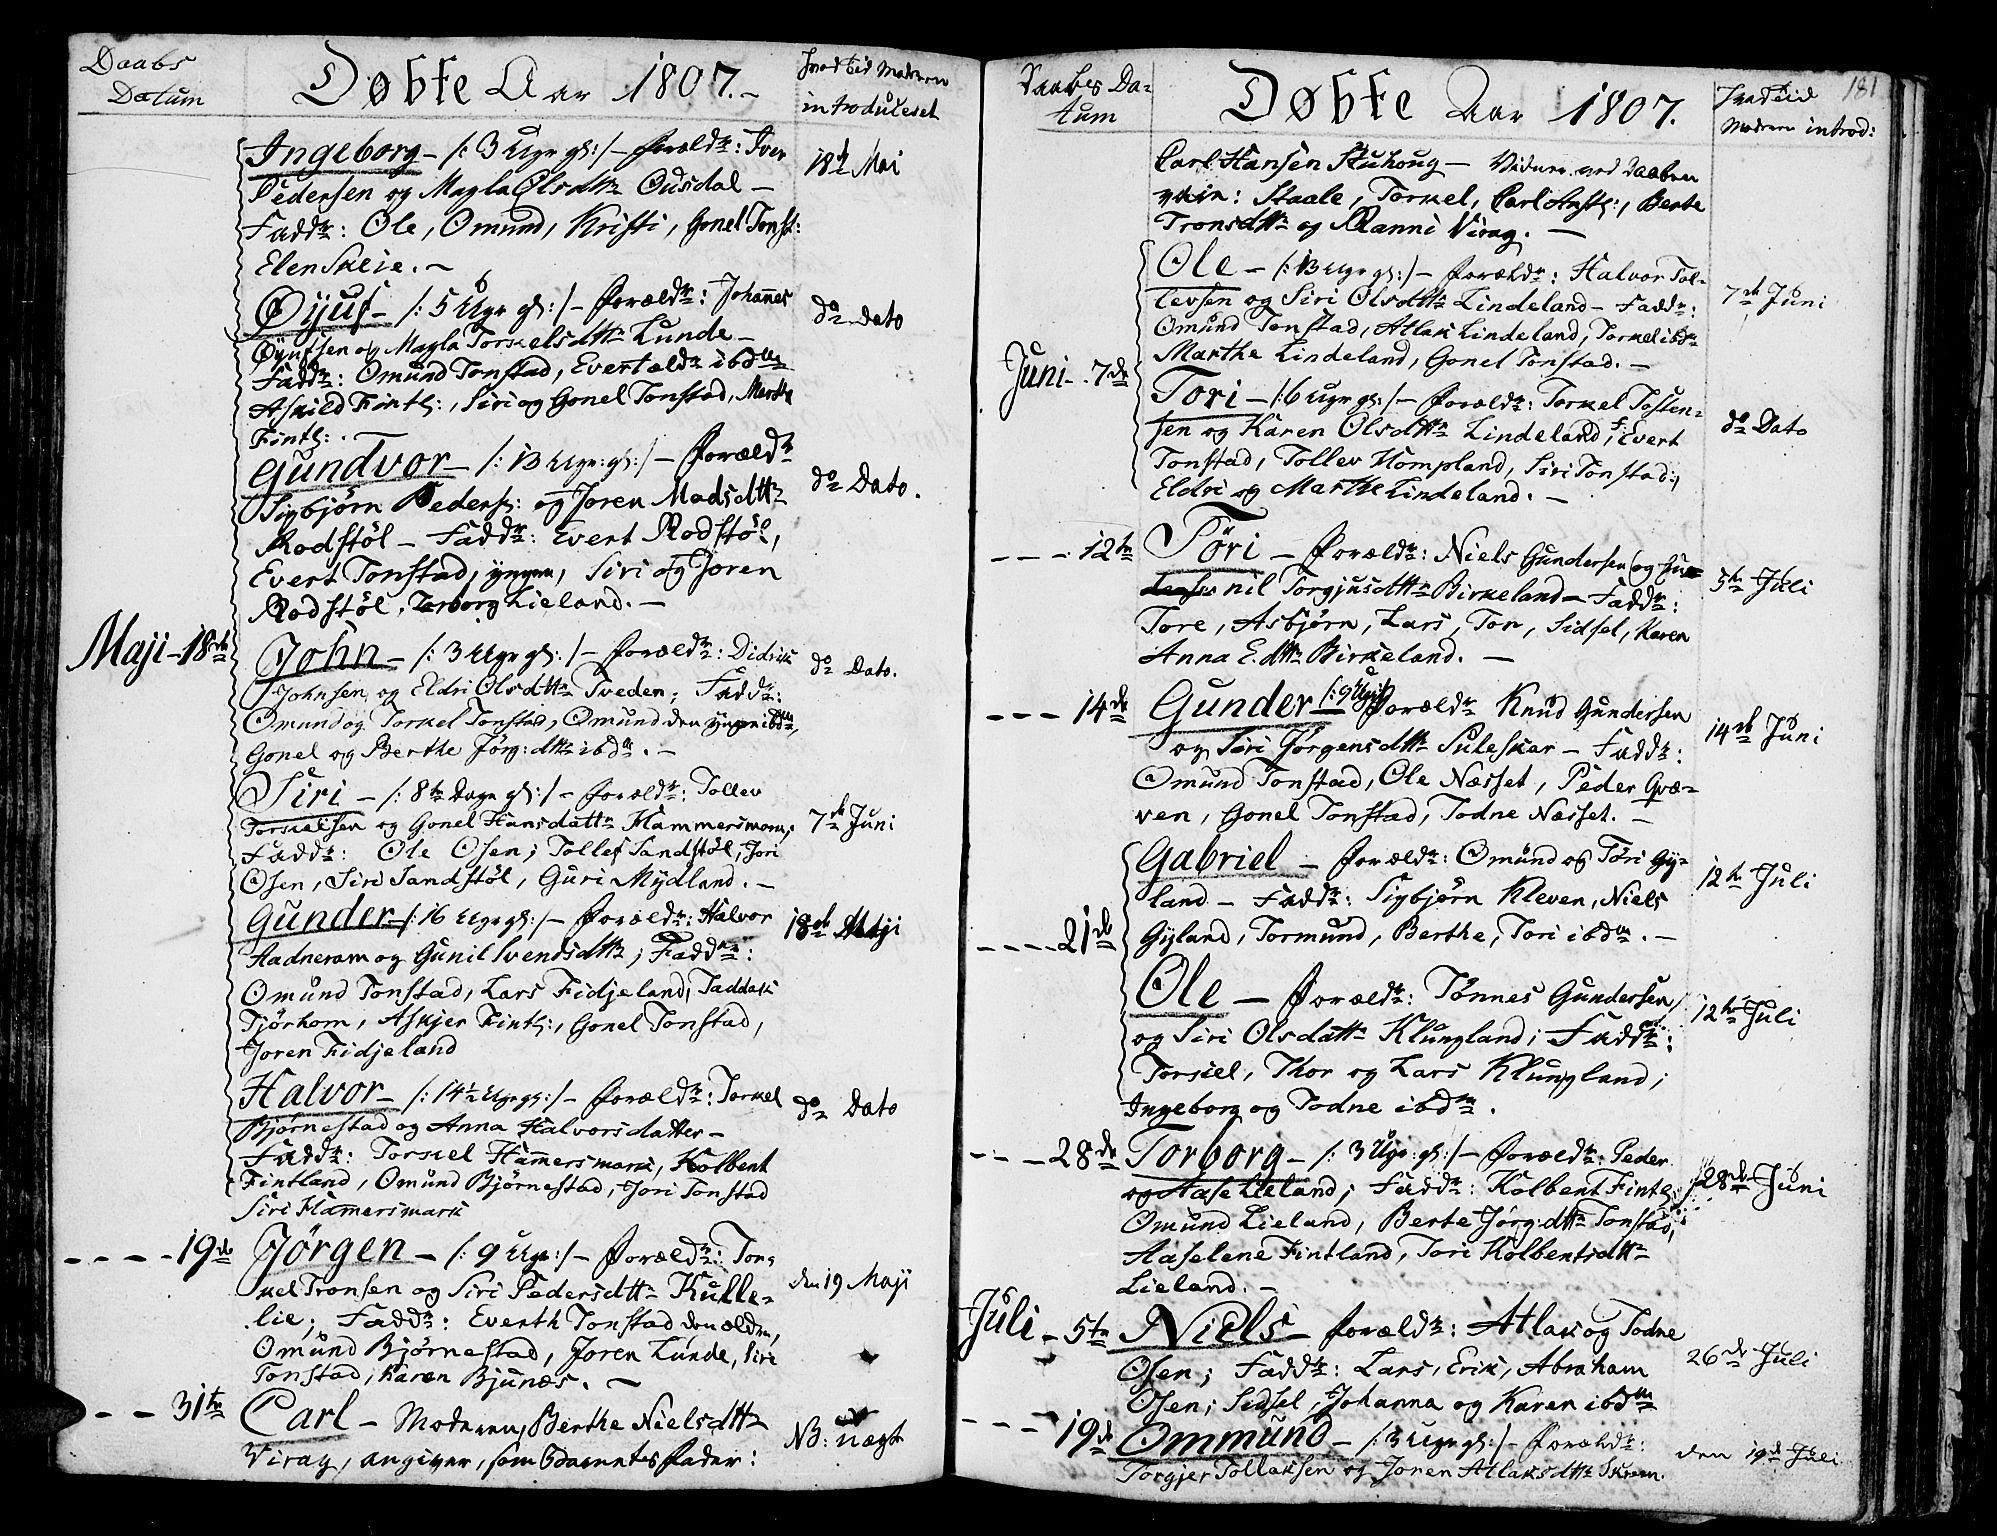 Daabs
Datum
Døbte Aar 1807.-
Hvad tid Moderen
introduceret
Ingeborg - /: 3 Uger gl:/ - Foreldr: Iver
Pedersen og Magla Olsdttr Ousdal -
Faddr: Ole, Omund, Kristi, Gonel Tonst:
Elen Skeie. -
18d Mai
Øyuf - /: 5 Uger gl:/ - Forældr: Johannes
Øyufsen og Magla Torkelsdttr Lunde -
Faddr: Omund Tonstad, Evert ældr ibdm
Askild Fintl:, Siri og Gonel Tonstad, Marthe
Fintl: . -
do Dato
Gundvor - /: 13 Uger: gl:/ - Forældr
Sigbjørn Peders: og Joren Madsdttr
Rodstøl - Faddr: Evert Rodstøl,
Evert Tonstad, yngre, Siri og Joren
Rodstøl, Torborg Lieland. -
do Dato.
Maji - 18de
John - /: 3 Uger gl:/ - Forældr: Didrik
Johnsen og Eldri Olsdttr Tveden; Faddr:
Omund og Torkel Tonstad, Omund den yngre ibdm,
Gonel og Berthe Jørg:dttr ibdm. -
do Dato.
Siri - /: 8te Dage gl:/ - Forældr: Tollev
Torkelsen og Gonel Hansdattr Hammersmark,
Faddr: Ole Osen; Tollef Sandstøl, Jori
Osen, Siri Sandstøl, Guri Mydland. -
7de Juni
Gunder /: 16 Uger gl:/ - Forældr: Halvor
Aadneram og Gunil Svendsdttr; Faddr:
Omund Tonstad, Lars Fidjeland, Taddak
Tjørhom, Askjer Fintl:, Gonel Tonstad,
Joren Fidjeland
18de Maji
Halvor - /: 14 Uger gl:/ - Forældr: Torkel
Bjørnestad og Anna Halvorsdatter -
Faddr: Torkel Hamersmark, Kolbent
Fintland, Omund Bjørnestad, Jori Tonstad
Siri Hamersmark
do Dato
- - - - 19de
Jørgen - /: 9 Uger:/ - Forældr: Tor-
kel Tronsen og Siri Pedersdttr Kulle-
lie; Faddr: Everth Tonstad den ældre,
Omund Bjørnestad, Joren Lunde, Siri
Tonstad, Karen Bjunes. -
den 19 Maji
- - - 31te
Carl - Moderen, Berthe Nielsdttr
Virag, angiver, som Barnets Fader:
NB: nægt
Daabes Da-
tum
Døbte Aar 1807.
Hvad tid
Moderen introd:
181
Carl Hansen Stuhoug - Vidner ved Daaben
vare: Staale, Torkel, Carl Anstl:, Berte
Tronsdttr og Ranni Virag. -
Ole - /: 13 Uger gl:/ - Forældr: Halvor Tol-
levsen og Siri Olsdttr Lindeland - Faddr:
Omund Tonstad, Atlak Lindeland, Torkel ibdm
Marthe Lindeland, Gonel Tonstad. -
7de Juni
Juni - . 7de
Tori - /: 6 Uger gl:/ - Forældr: Torkel Tosten-
sen og Karen Olsdttr Lindeland, F: Evert
Tonstad, Tollev Hompland, Siri Tonstad:,
Eldri og Marthe Lindeland. -
do Dato
- - - 12te
Töri - Forældr: Niels Gundersen og Gu
nil Torgjusdttr Birkeland - Faddr:
Tore, Asbjørn, Lars, Ton, Sidsel, Karen
Anna E.dttr Birkeland. -
5te Juli
- - - 14de
Gunder /: 9 Ug:/ Forældr Knud Gundersen
og Siri Jørgensdttr Suleskar - Faddr:
Omund Tonstad, Ole Næsset, Peder Græ-
ven, Gonel Tonstad, Todne Næsset. -
14de Juni
- - - - 21de
Gabriel - Forældr: Omund og Töri Gy-
land - Faddr: Sigbjørn Kleven, Niels
Gyland, Tormund, Berthe, Tori ibdm. -
12te Juli
Ole - Forældr: Tønnes Gundersen
og Siri Olsdattr Klungland; Faddr:
Torkel, Thor og Lars Klungland;
Ingeborg og Todne ibdm.
12te Juli
- - - 28de
Torborg - /: 3 Uger: gl:/ - Forældr: Peder
og Aase Lieland; Faddr: Kolbent Fintl:,
Omund Lieland, Berte Jørg:dttr Tonstad,
Aaselene Fintland, Tori Kolbentsdttr
Lieland. -
28de Juni
Juli - 5te
Niels - Forældr: Atlak og Todne
Osen; Faddr: Lars, Erik, Abraham
Osen; Sidsel, Johanna og Karen ibdm
26de Juli
- - - 19de
Ommund - /: 3 Uger gl:/ - Forældr:
Torgjer Tollaksen og Joren Atlaksdttr
den 19de Juli